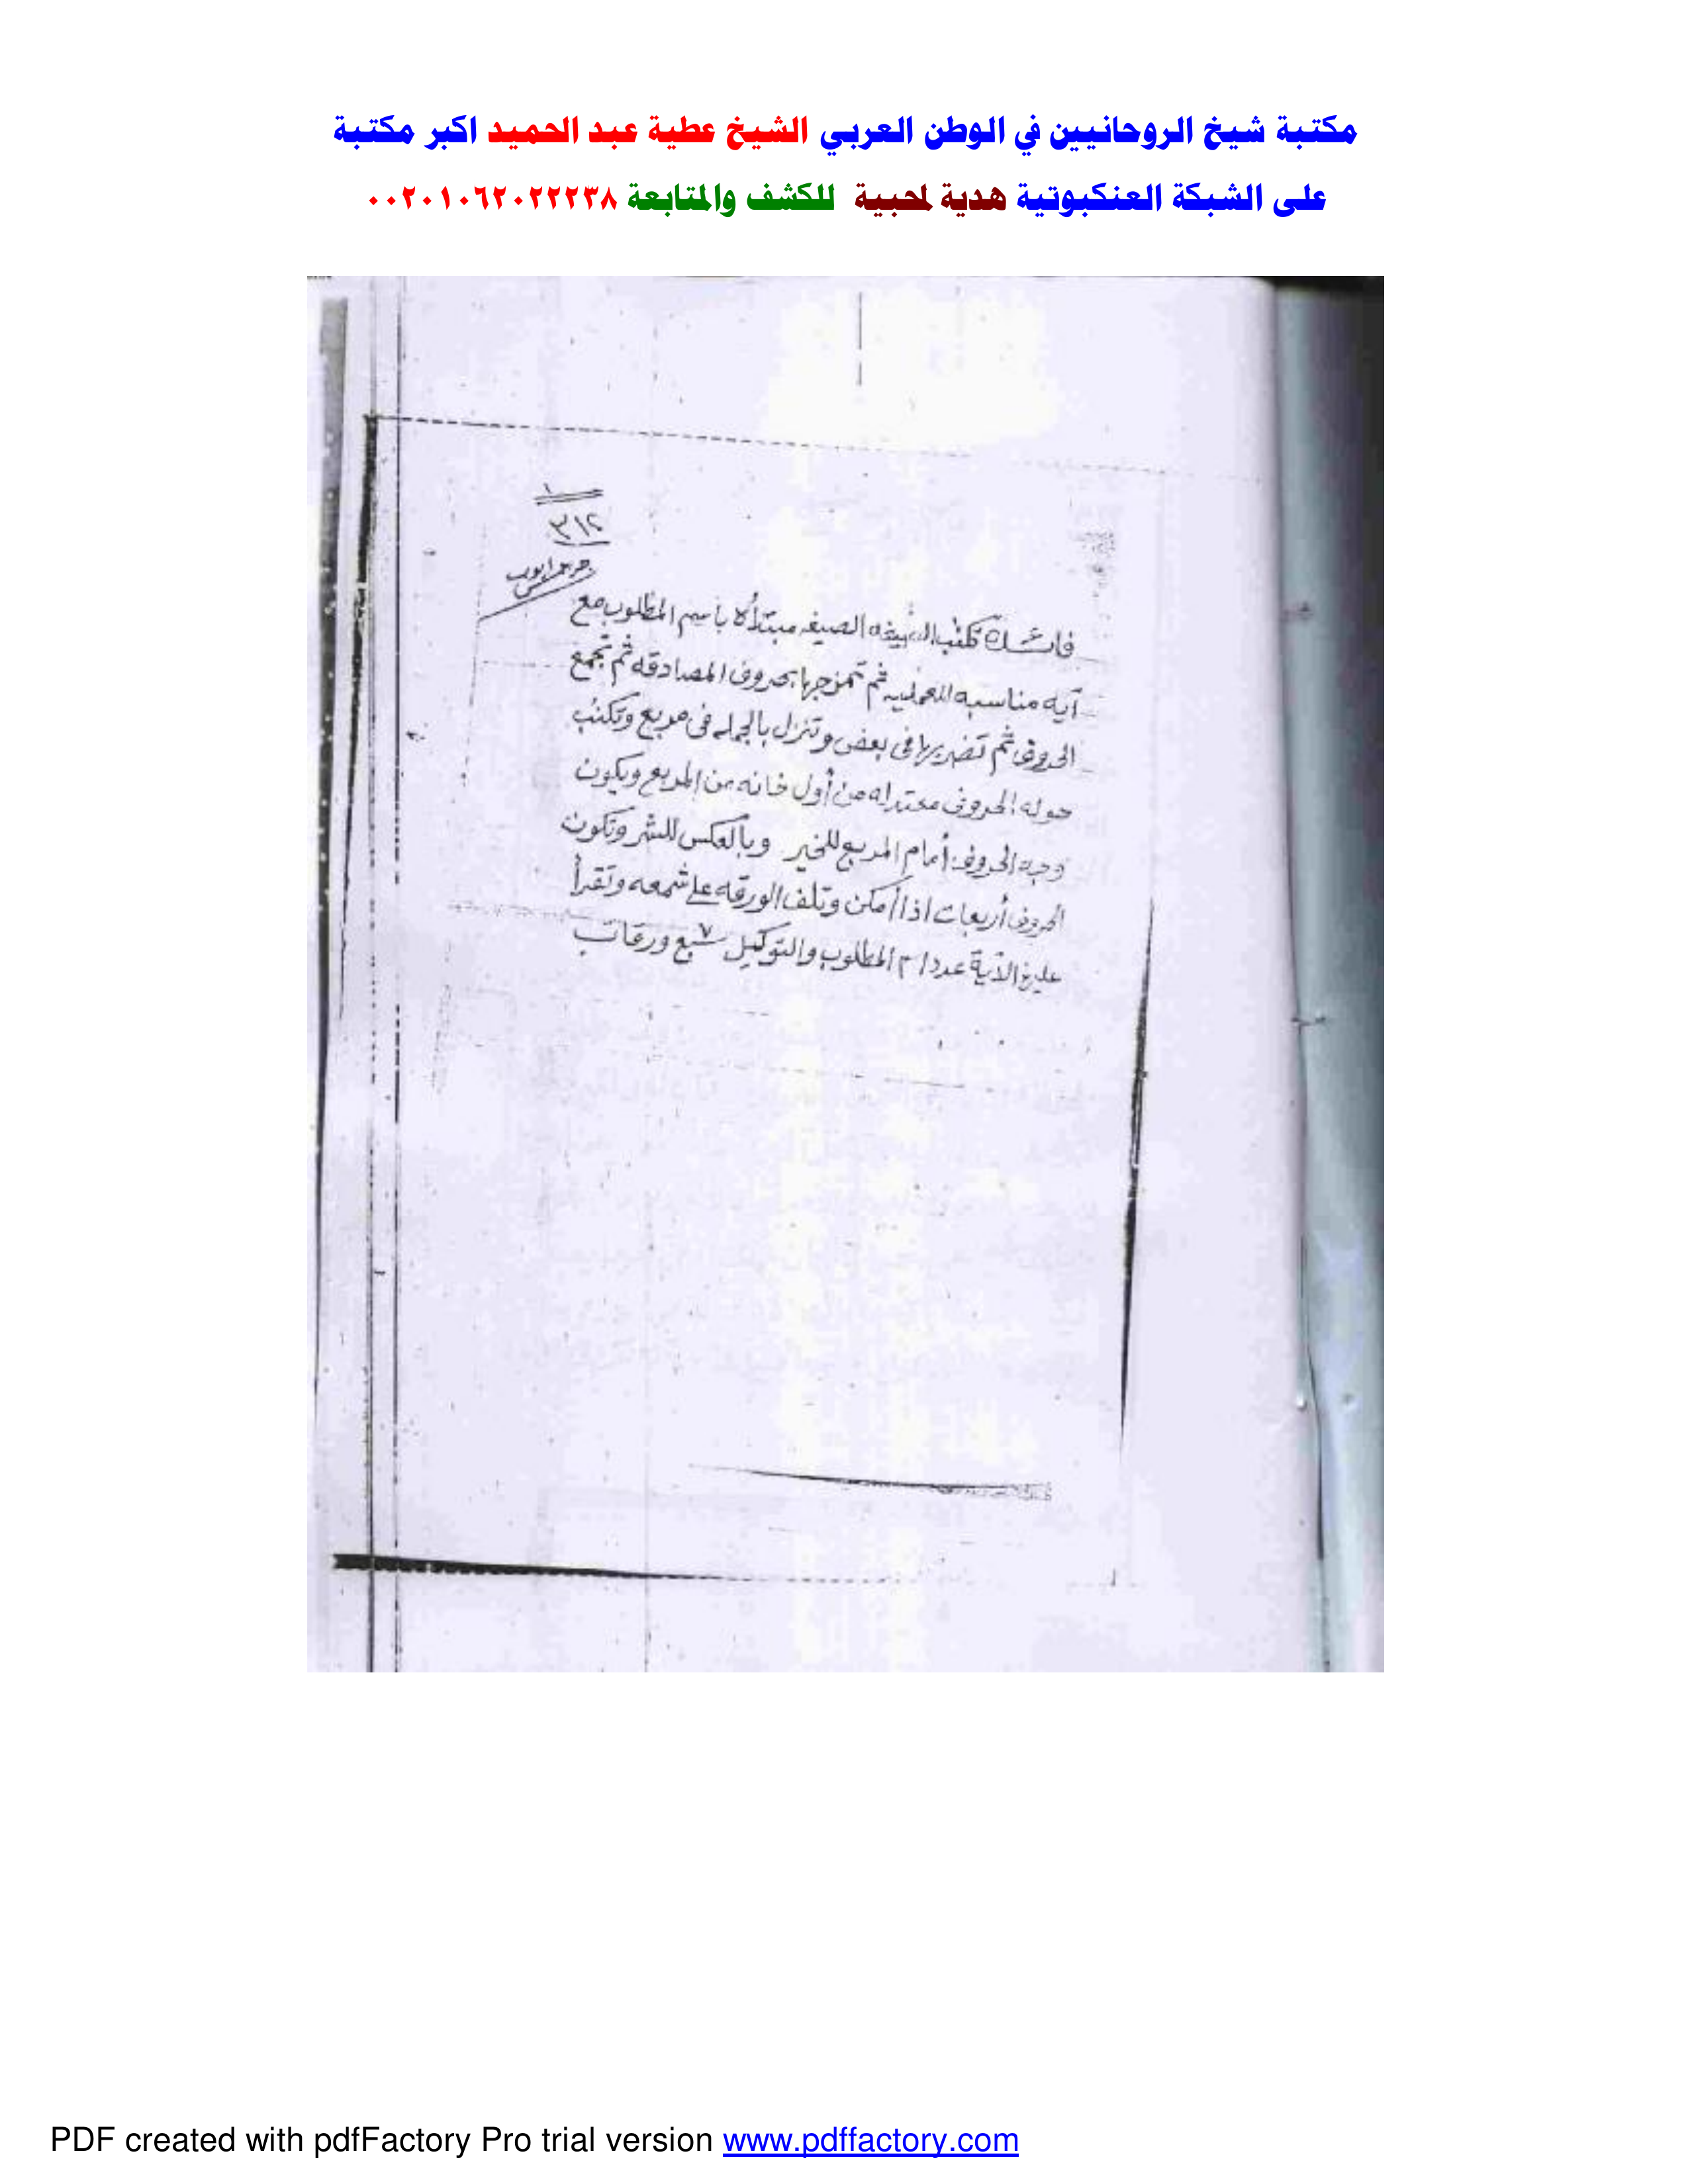 مكتبة شيخ الروحانيين في الوطن العربي الشيخ عطية عبد الحميد اكبر مكتبة
على الشبكة العنكبوتية هدية لمحبية للكشف والمتابعة ٠٠٢٠١٠٦٢٠٢٢٢٣٨
١
٣١٢
تكتب الصيغه مبتدأه بأسم المطلوب مع
آيه مناسبه للعمليه ثم تمزجها بحروف المصادقه ثم تجمع
الحروف ثم تضربها فى بعض وتنزل بالجمله فى مربع وتكتب
حوله الحروف معتدله من أول خانه من المربع ويكون
وجه الحروف أمام المربع للخير وبالعكس للشر وتكون
الحروف أربعات اذا أمكن وتلف الورقه على شمعه وتقرأ
عليها الآية عدد اسم المطلوب والتوكيل ٧ سبع ورقات
PDF created with pdfFactory Pro trial version www.pdffactory.com